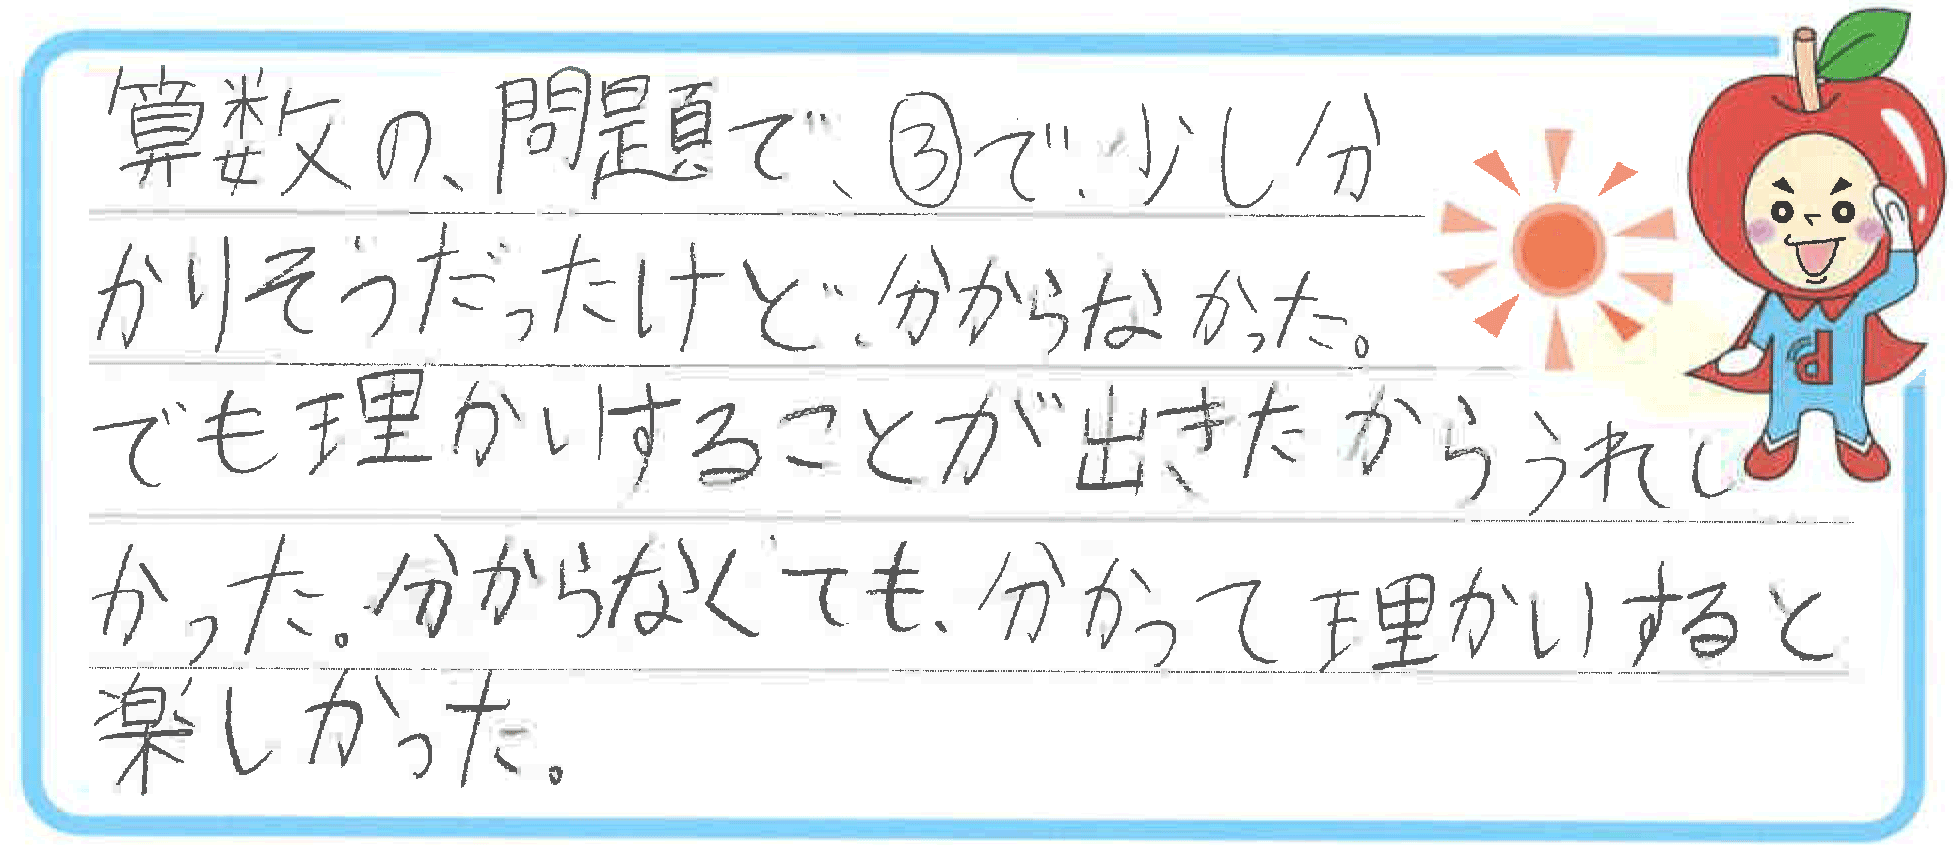 算数の、問題で、③で、少し分
かりそうだったけど、分からなかった。
でも理かいすることが出きたからうれし
かった。分からなくても、分かって理かいすると
楽しかった。